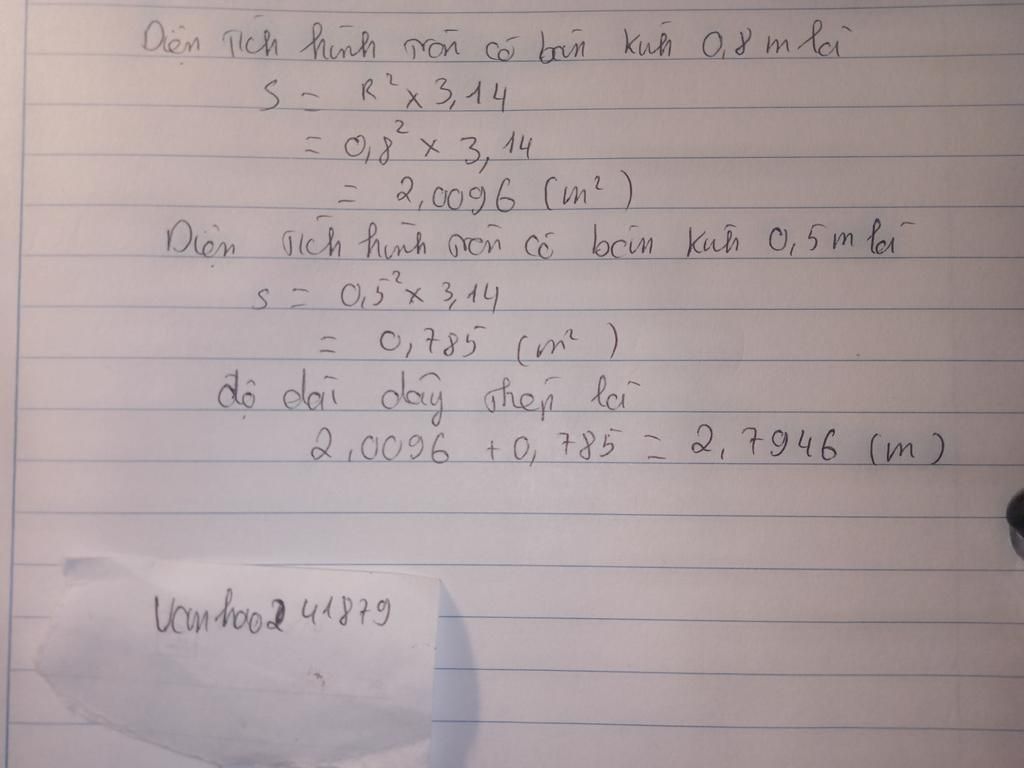 Diện tích hình tròn có bán kính 0,8 m là
S = R² x 3,14
= 0,8² x 3,14
= 2,0096 (m²)
Diện tích hình tròn có bán kính 0,5 m là
S = 0,5² x 3,14
= 0,785 (m²)
độ dài dây thép là
2,0096 + 0,785 = 2,7946 (m)
Vanhao241879